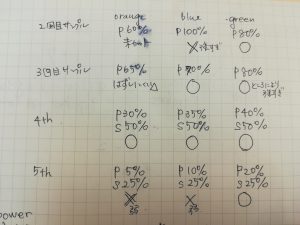 orange blue green
2回目サンプル P60% P100% P80%
未 × 強すぎ ○
3回目サンプル P65% P70% P80%
はずしにくい△ ○ ○ ところにより強すぎ
4th P30% P35% P40%
S50% S50% S50%
○ ○ ○
5th P5% P10% P20%
S25% S25% S25%
× × ○
弱 弱
power